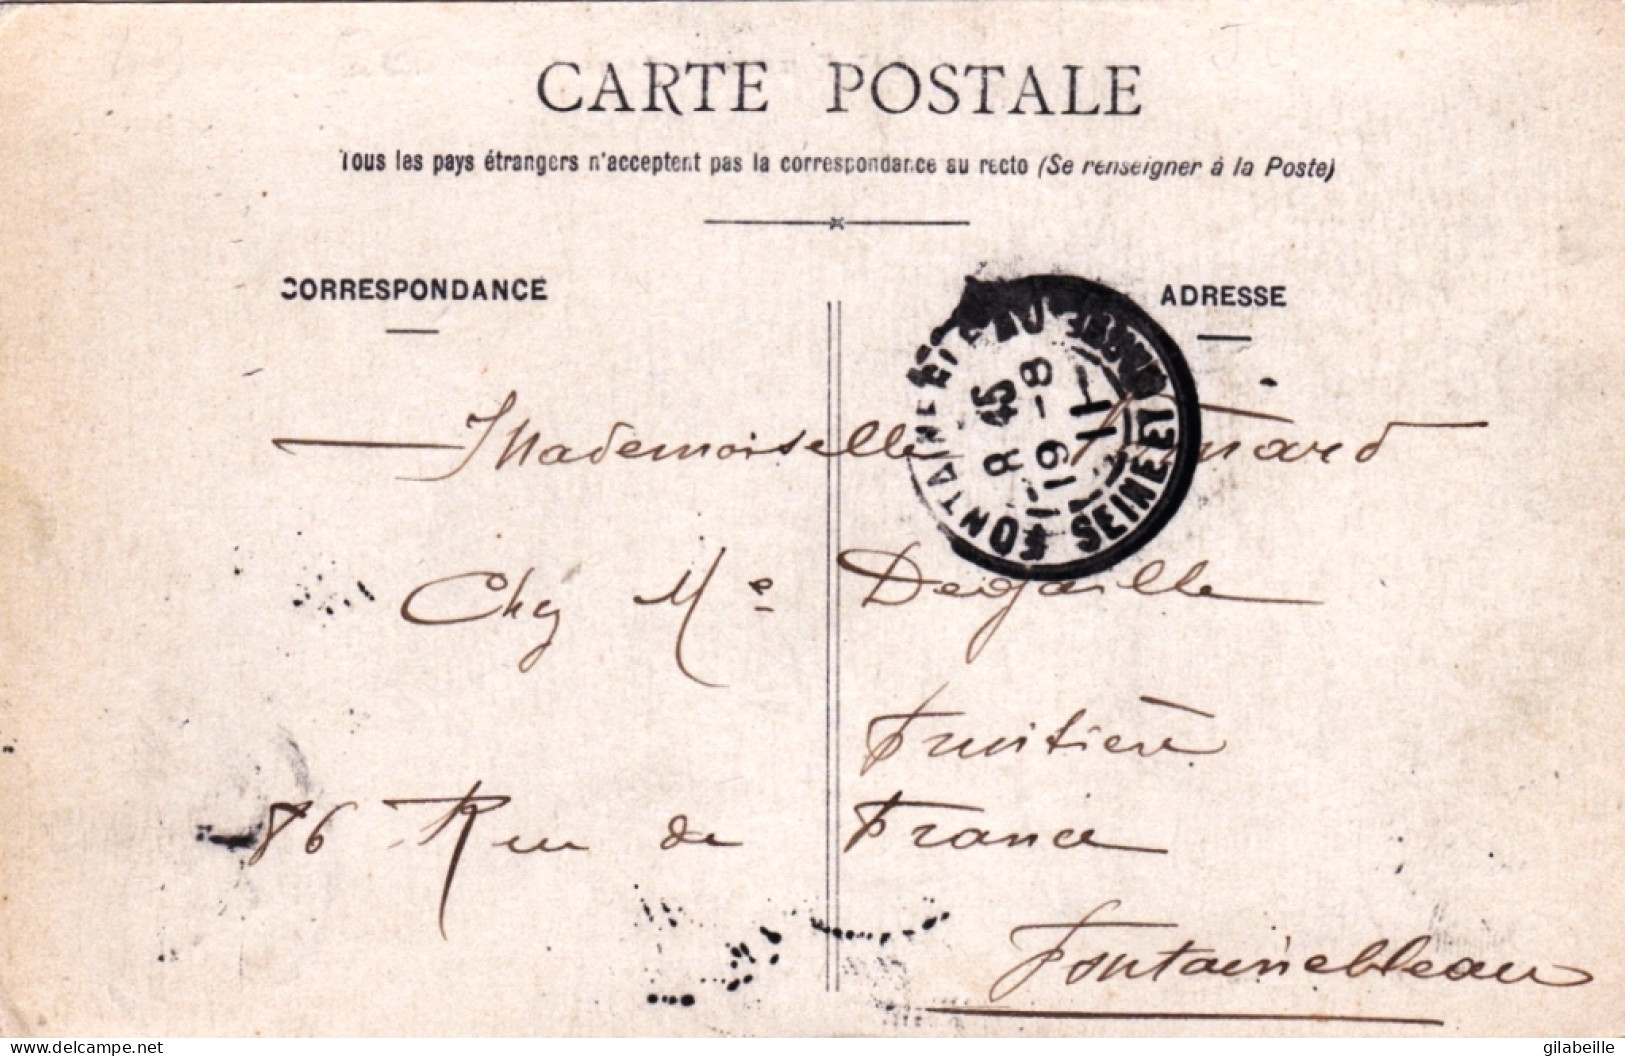 CARTE POSTALE
Tous les pays étrangers n'acceptent pas la correspondance au recto (Se renseigner à la Poste)
CORRESPONDANCE
ADRESSE
FONTAINEBLEAU
SEINE ET MARNE
8 45
19-8
11
Mademoiselle
Chez Me Degaille
Fruitière
86 Rue de France
Fontainebleau
delcampe.net
gilabeille